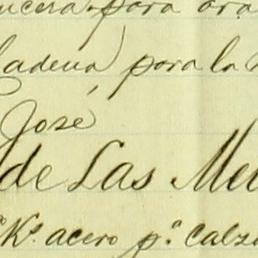 para ora
Cadena para la
José
de Las Me
Ks. acero p.ª calza